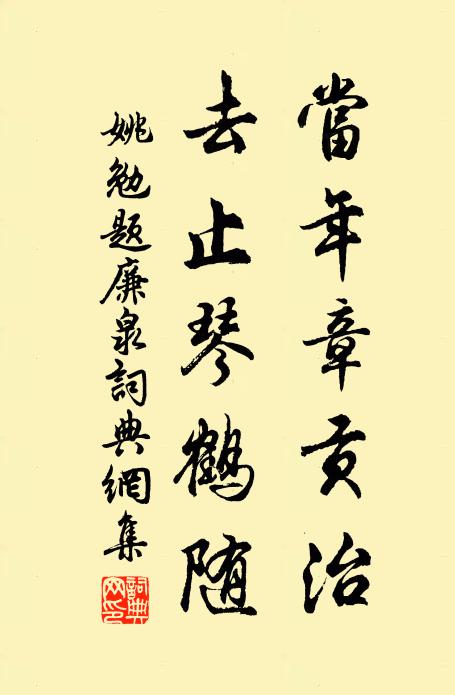 當年章貢治
去止琴鶴随
姚勉題廉泉詞典網集
詞典網印